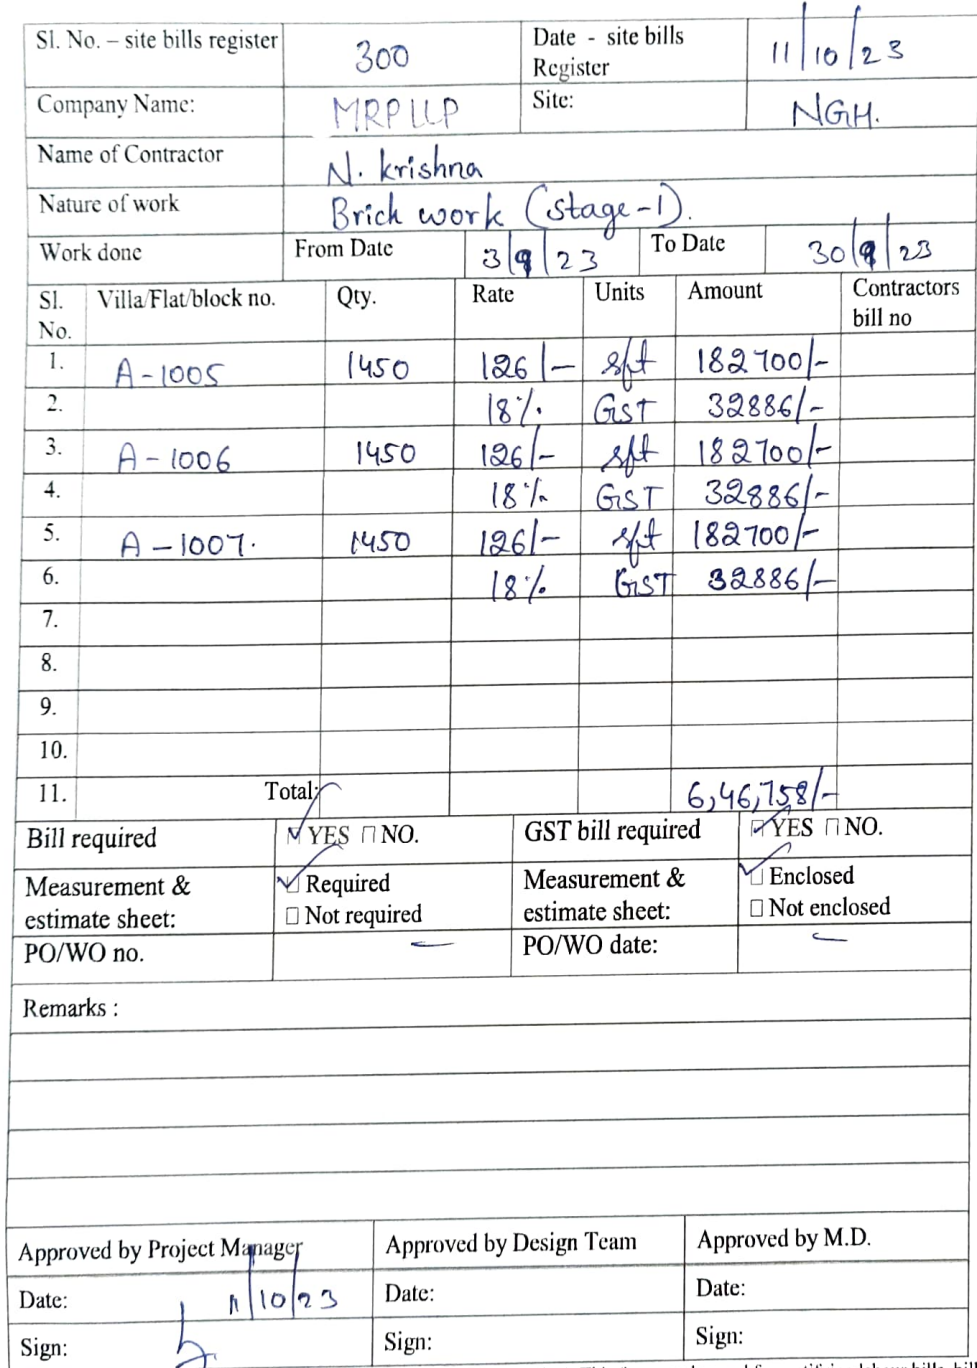 Sl. No. – site bills register 300 Date - site bills Register 11/10/23
Company Name: MRPLLP Site: NGH.
Name of Contractor N. krishna
Nature of work Brick work (stage-1).
Work done From Date 3/9/23 To Date 30/9/23
Sl. No. Villa/Flat/block no. Qty. Rate Units Amount Contractors bill no
1. A-1005 1450 126/- sft 182700/-
2. 18% GST 32886/-
3. A-1006 1450 126/- sft 182700/-
4. 18% GST 32886/-
5. A-1007. 1450 126/- sft 182700/-
6. 18% GST 32886/-
7.
8.
9.
10.
11. Total: 6,46,758/-
Bill required ☑ YES ☐ NO. GST bill required ☑ YES ☐ NO.
Measurement & estimate sheet: ☑ Required ☐ Not required Measurement & estimate sheet: ☑ Enclosed ☐ Not enclosed
PO/WO no. – PO/WO date: –
Remarks :
Approved by Project Manager Approved by Design Team Approved by M.D.
Date: 11/10/23 Date: Date:
Sign: Sign: Sign: